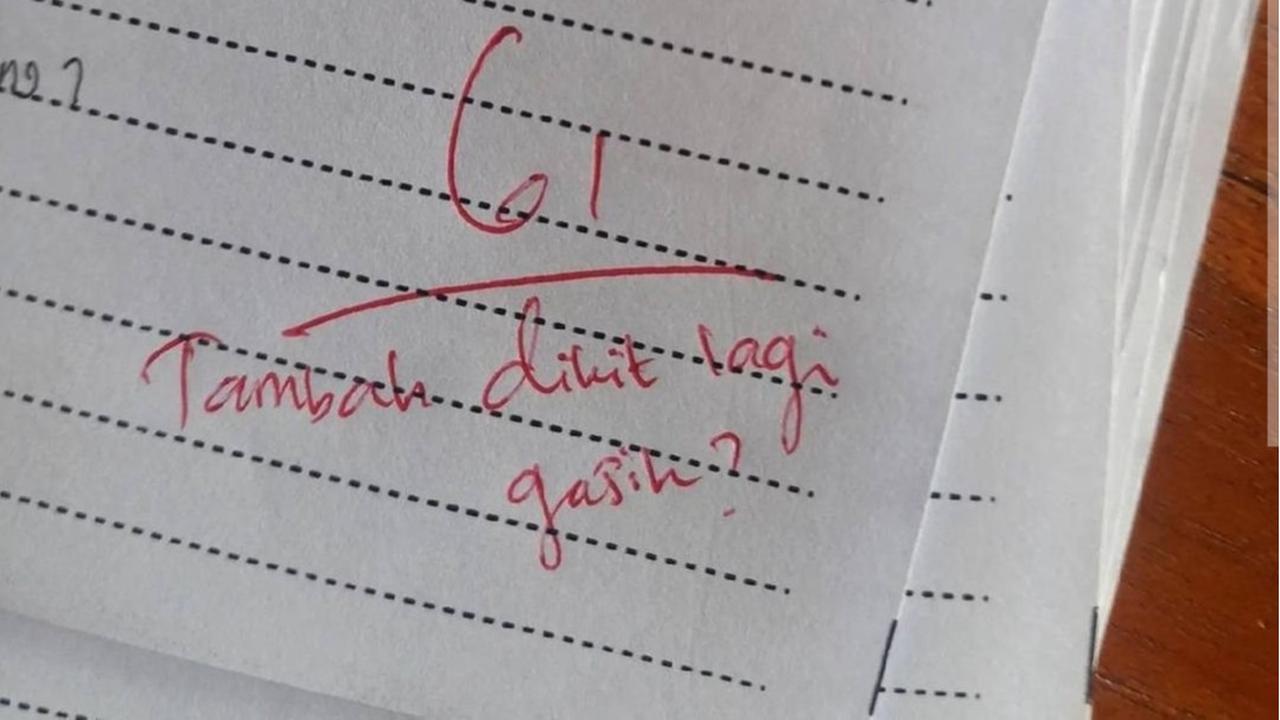 no.2
61
Tambah dikit lagi
gasih?